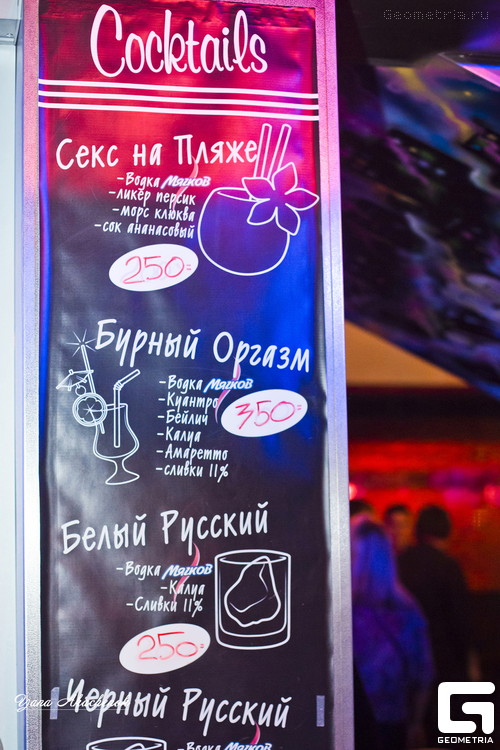 Geometria.ru
Cocktails
Секс на Пляже
-Водка Мягков
-ликёр персик
-морс клюква
-сок ананасовый
250=
Бурный Оргазм
-Водка Мягков
-Куантро
-Бейлич
-Калуа
-Амаретто
-сливки 11%
350=
Белый Русский
-Водка Мягков
-Калуа
-Сливки 11%
250=
Yana
Черный Русский
-Водка Мягков
GEOMETRIA